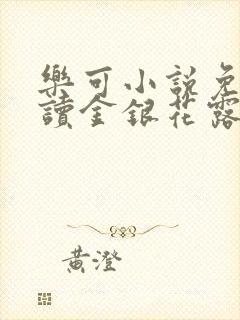 樂可小說免
讀金銀花露
黃澄